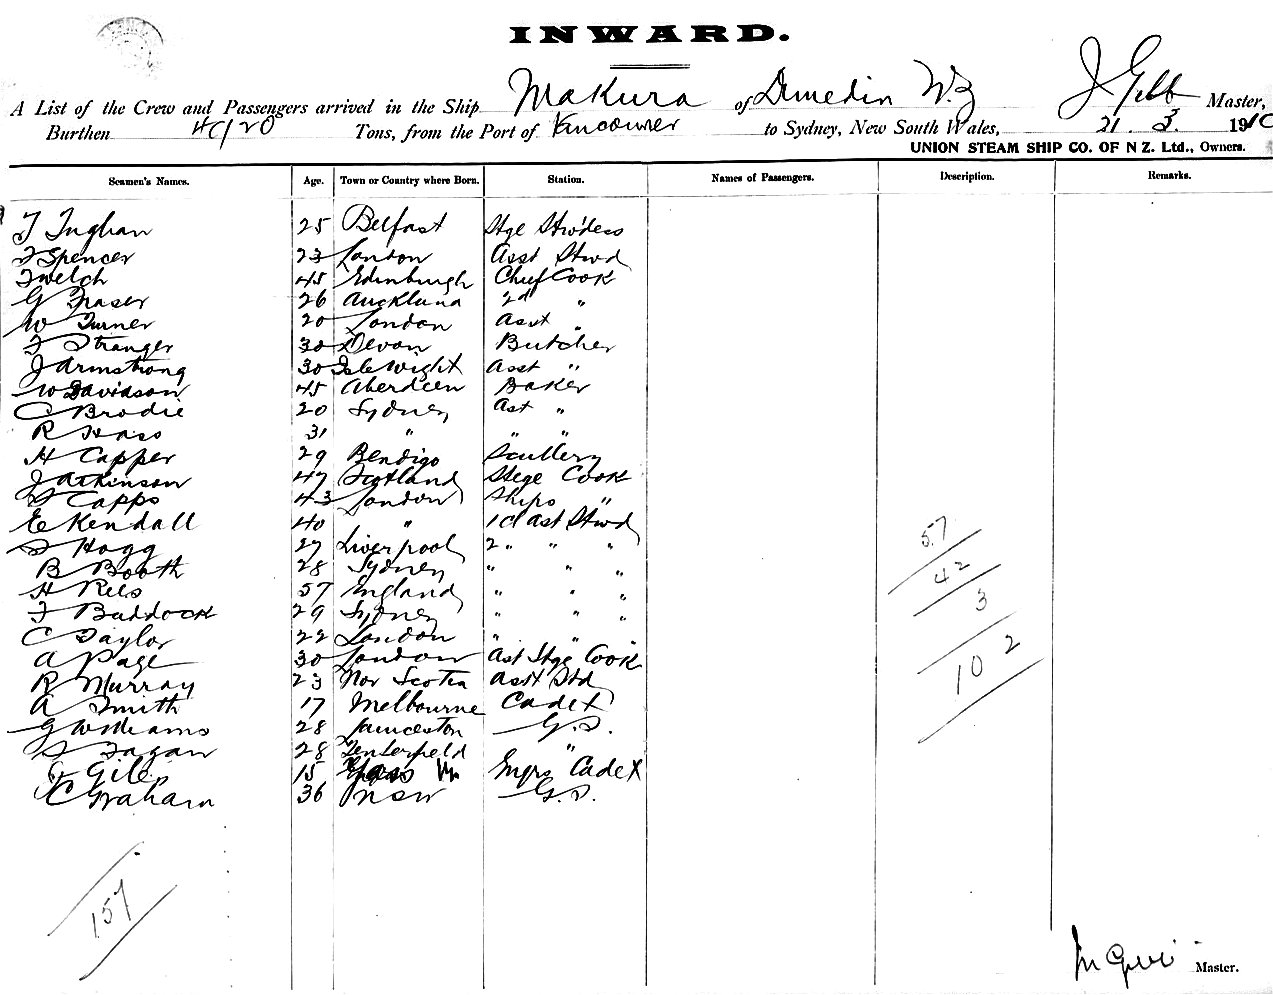 INWARD.
A List of the Crew and Passengers arrived in the Ship Makura of Dunedin N.Z J Gibb Master,
Burthen 4920 Tons, from the Port of Vancouver to Sydney, New South Wales, 21. 3. 1910
UNION STEAM SHIP CO. OF N Z. Ltd., Owners.
Seamen's Names. Age. Town or Country where Born. Station. Names of Passengers. Description. Remarks.
Ingham 25 Belfast Stge Stwdess
Spencer 23 London Asst Stwd
Welch 45 Edinburgh Chief Cook
G Fraser 26 Auckland 2nd "
W Turner 20 London Asst "
F Stranger 30 Devon Butcher
J Armstrong 30 Isle Wight Asst "
W Davidson 45 Aberdeen Baker
C Brodie 20 Sydney Ast "
R Hass 31 " " "
H Capper 29 Bendigo Scullery
J Atkinson 47 Scotland Stege Cook
Capps 43 London Ships "
E Kendall 40 " 1 Cl Ast Stwd
Hogg 27 Liverpool 2 " " "
B Booth 28 Sydney " " "
H Rees 57 England " " "
F Buddock 29 Sydney " " "
C Taylor 22 London " " "
A Page 30 London Ast Stge Cook
R Murray 23 Nov Scotia Asst Std
A Smith 17 Melbourne Cadet
G Williams 28 Launceston G.S.
Fagan 28 Tenterfield "
Giles 15 Engrs Cadet
C Graham 36 NSW G.S.
57
42
3
102
157
Master.